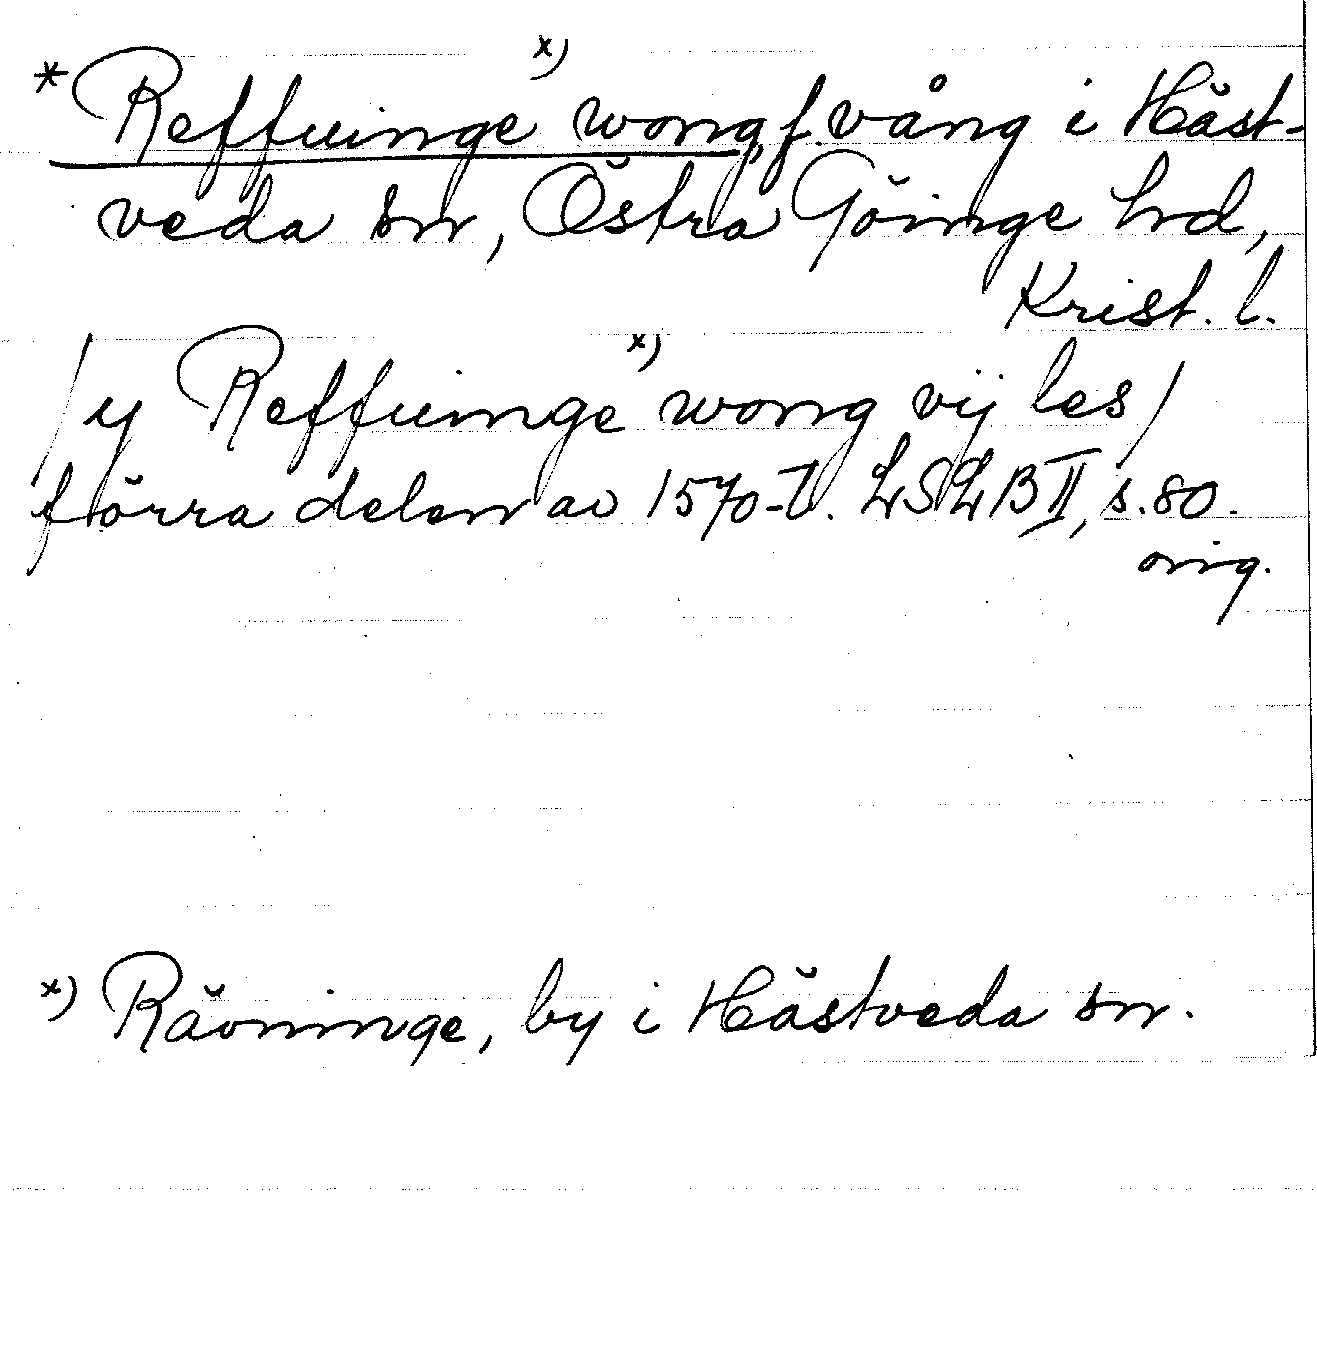 * Reffuinge x) wong, f. vång i Häst-
veda sn, Östra Göinge hd,
Krist. l.
/ y Reffuinge x) wong vij les /
förra delen av 1570-t. LSLB II, s. 80.
orig.
x) Rävninge, by i Hästveda sn.